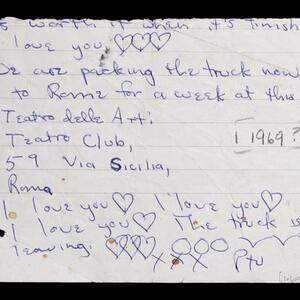 s worth it when it's finish
I love you ♡♡♡
We are packing the truck now
to Rome for a week at this
Teatro delle Arti
Teatro Club,
59 Via Sicilia,
Roma
I love you ♡ I love you ♡
I love you ♡ The truck is
leaving. ♡♡♡ x x x
[1969?